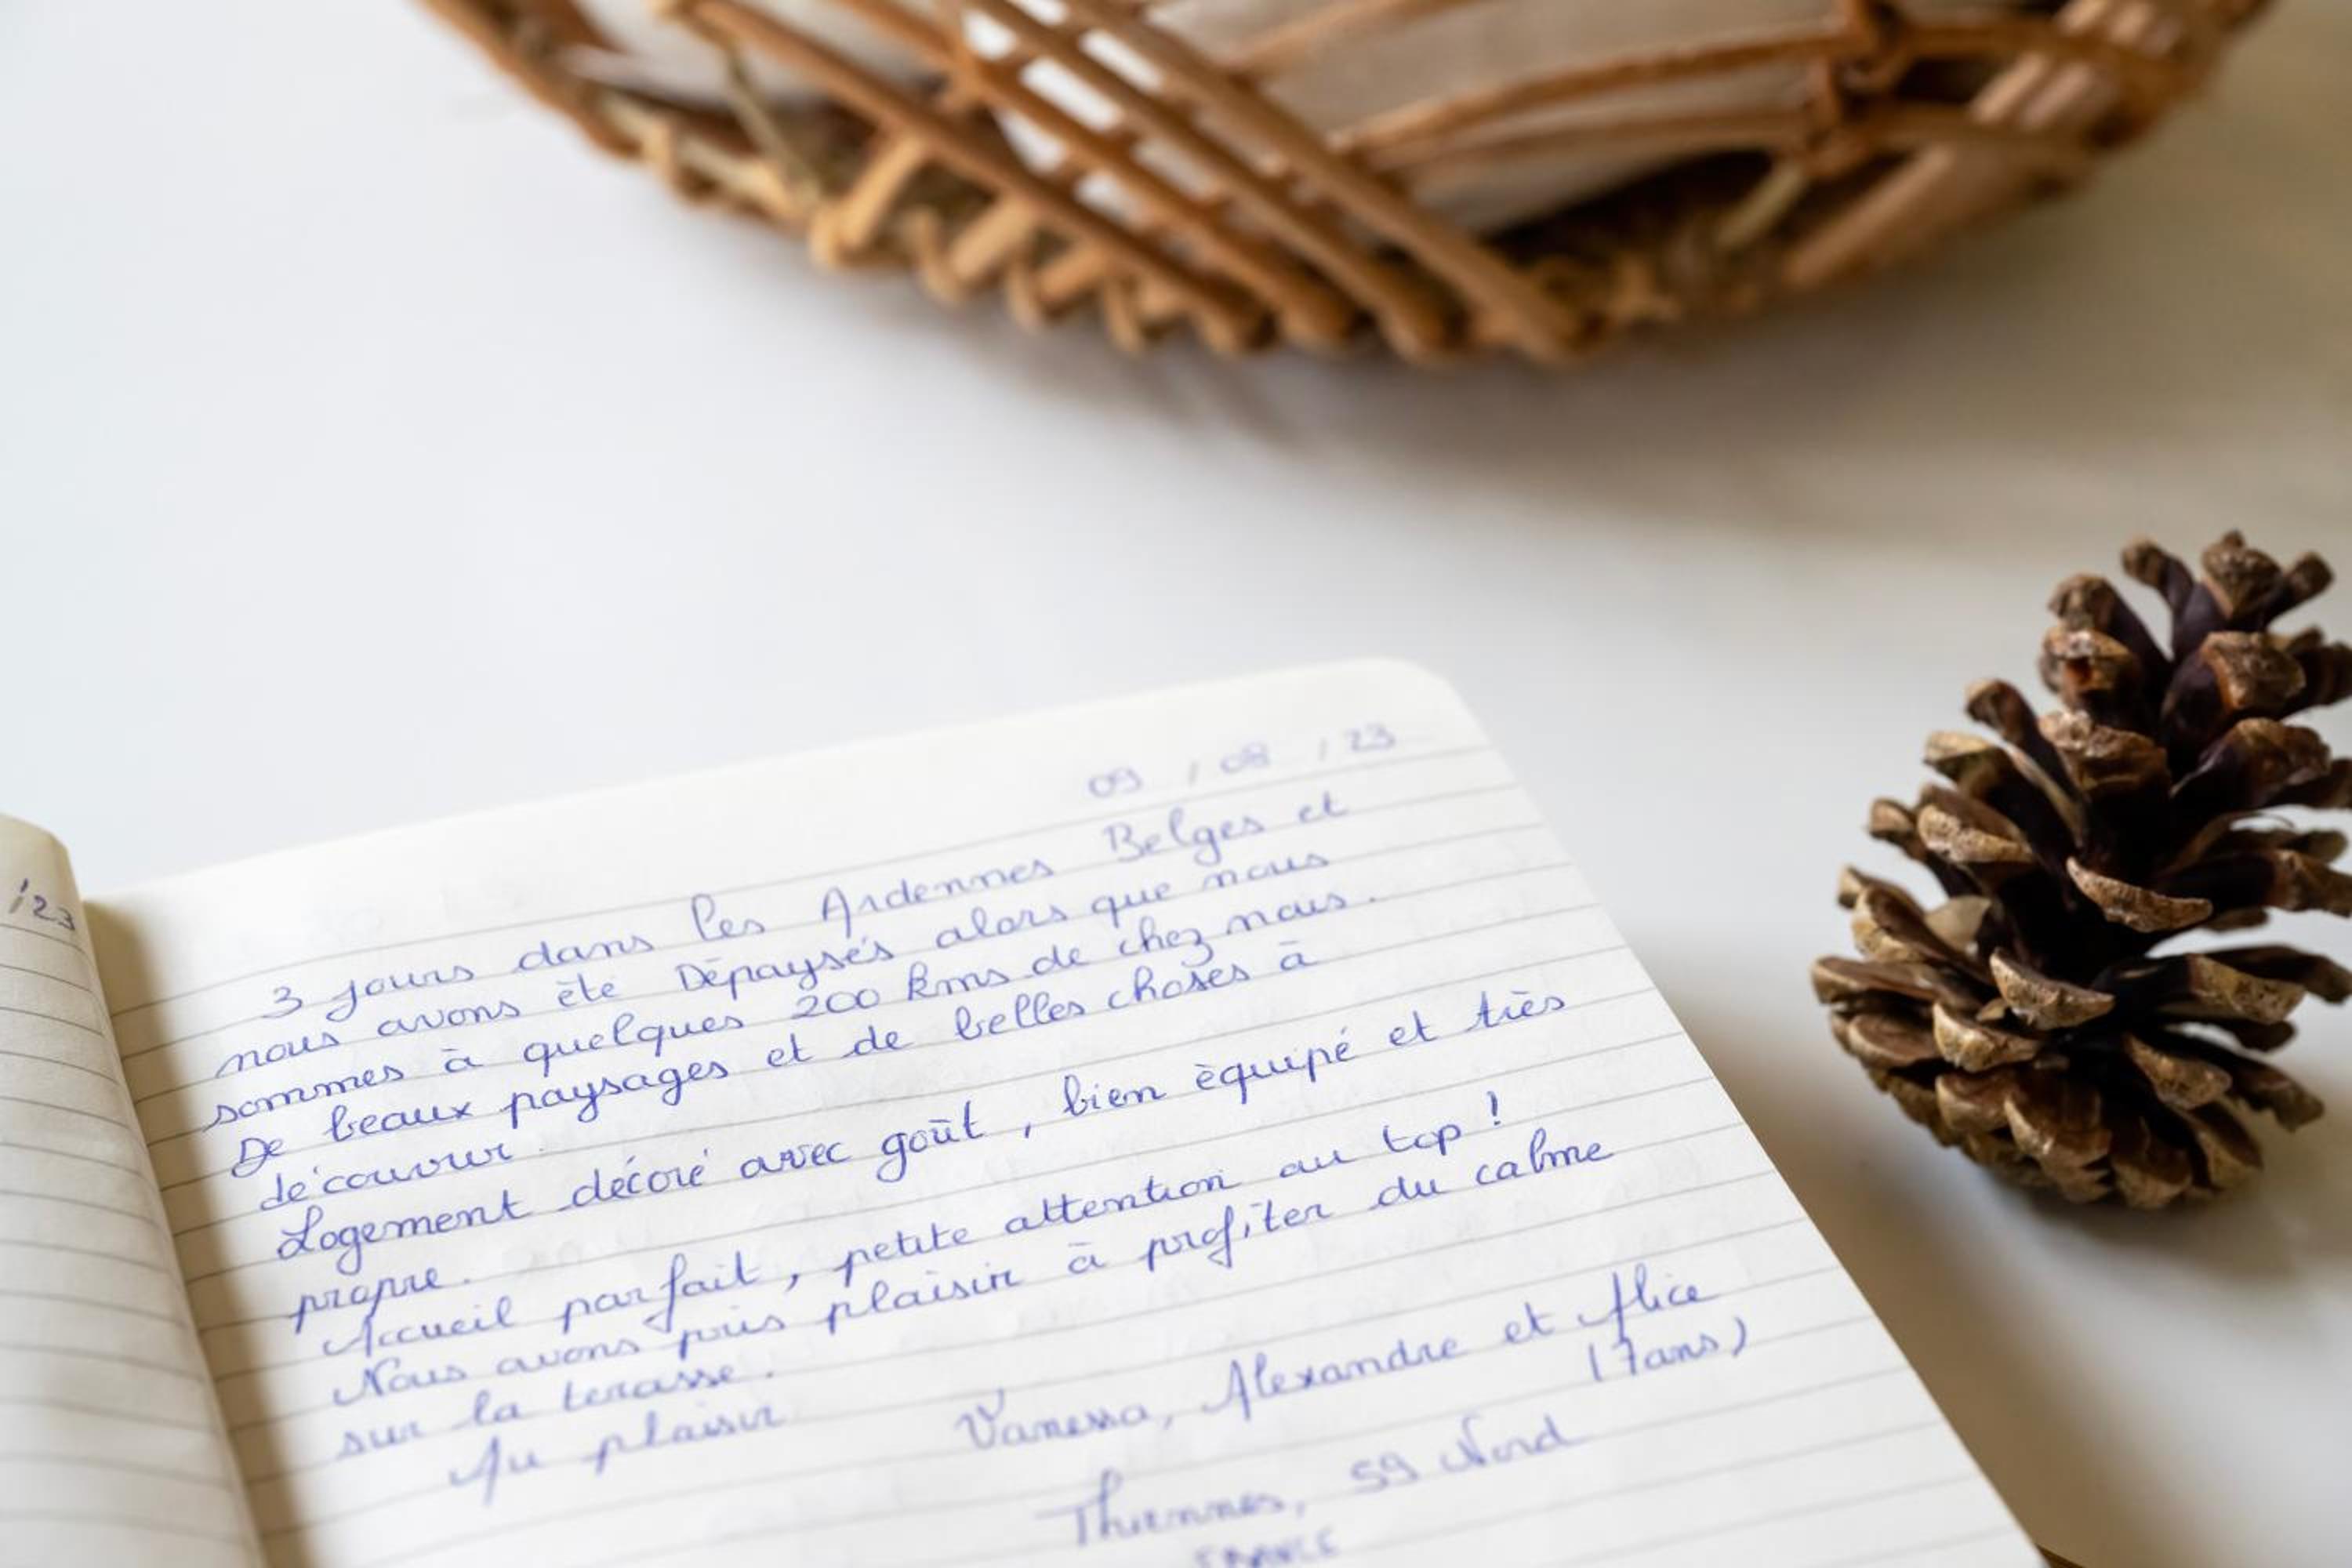 /23
09 / 08 / 23
3 jours dans les Ardennes Belges et
nous avons été Dépaysés alors que nous
sommes à quelques 200 kms de chez nous.
De beaux paysages et de belles choses à
découvrir.
Logement décoré avec goût, bien èquipé et très
propre.
Accueil parfait, petite attention au top !
Nous avons pris plaisir à profiter du calme
sur la terasse.
Au plaisir
Vanessa, Alexandre et Alice
(7ans)
Thiennes, 59 Nord
FRANCE